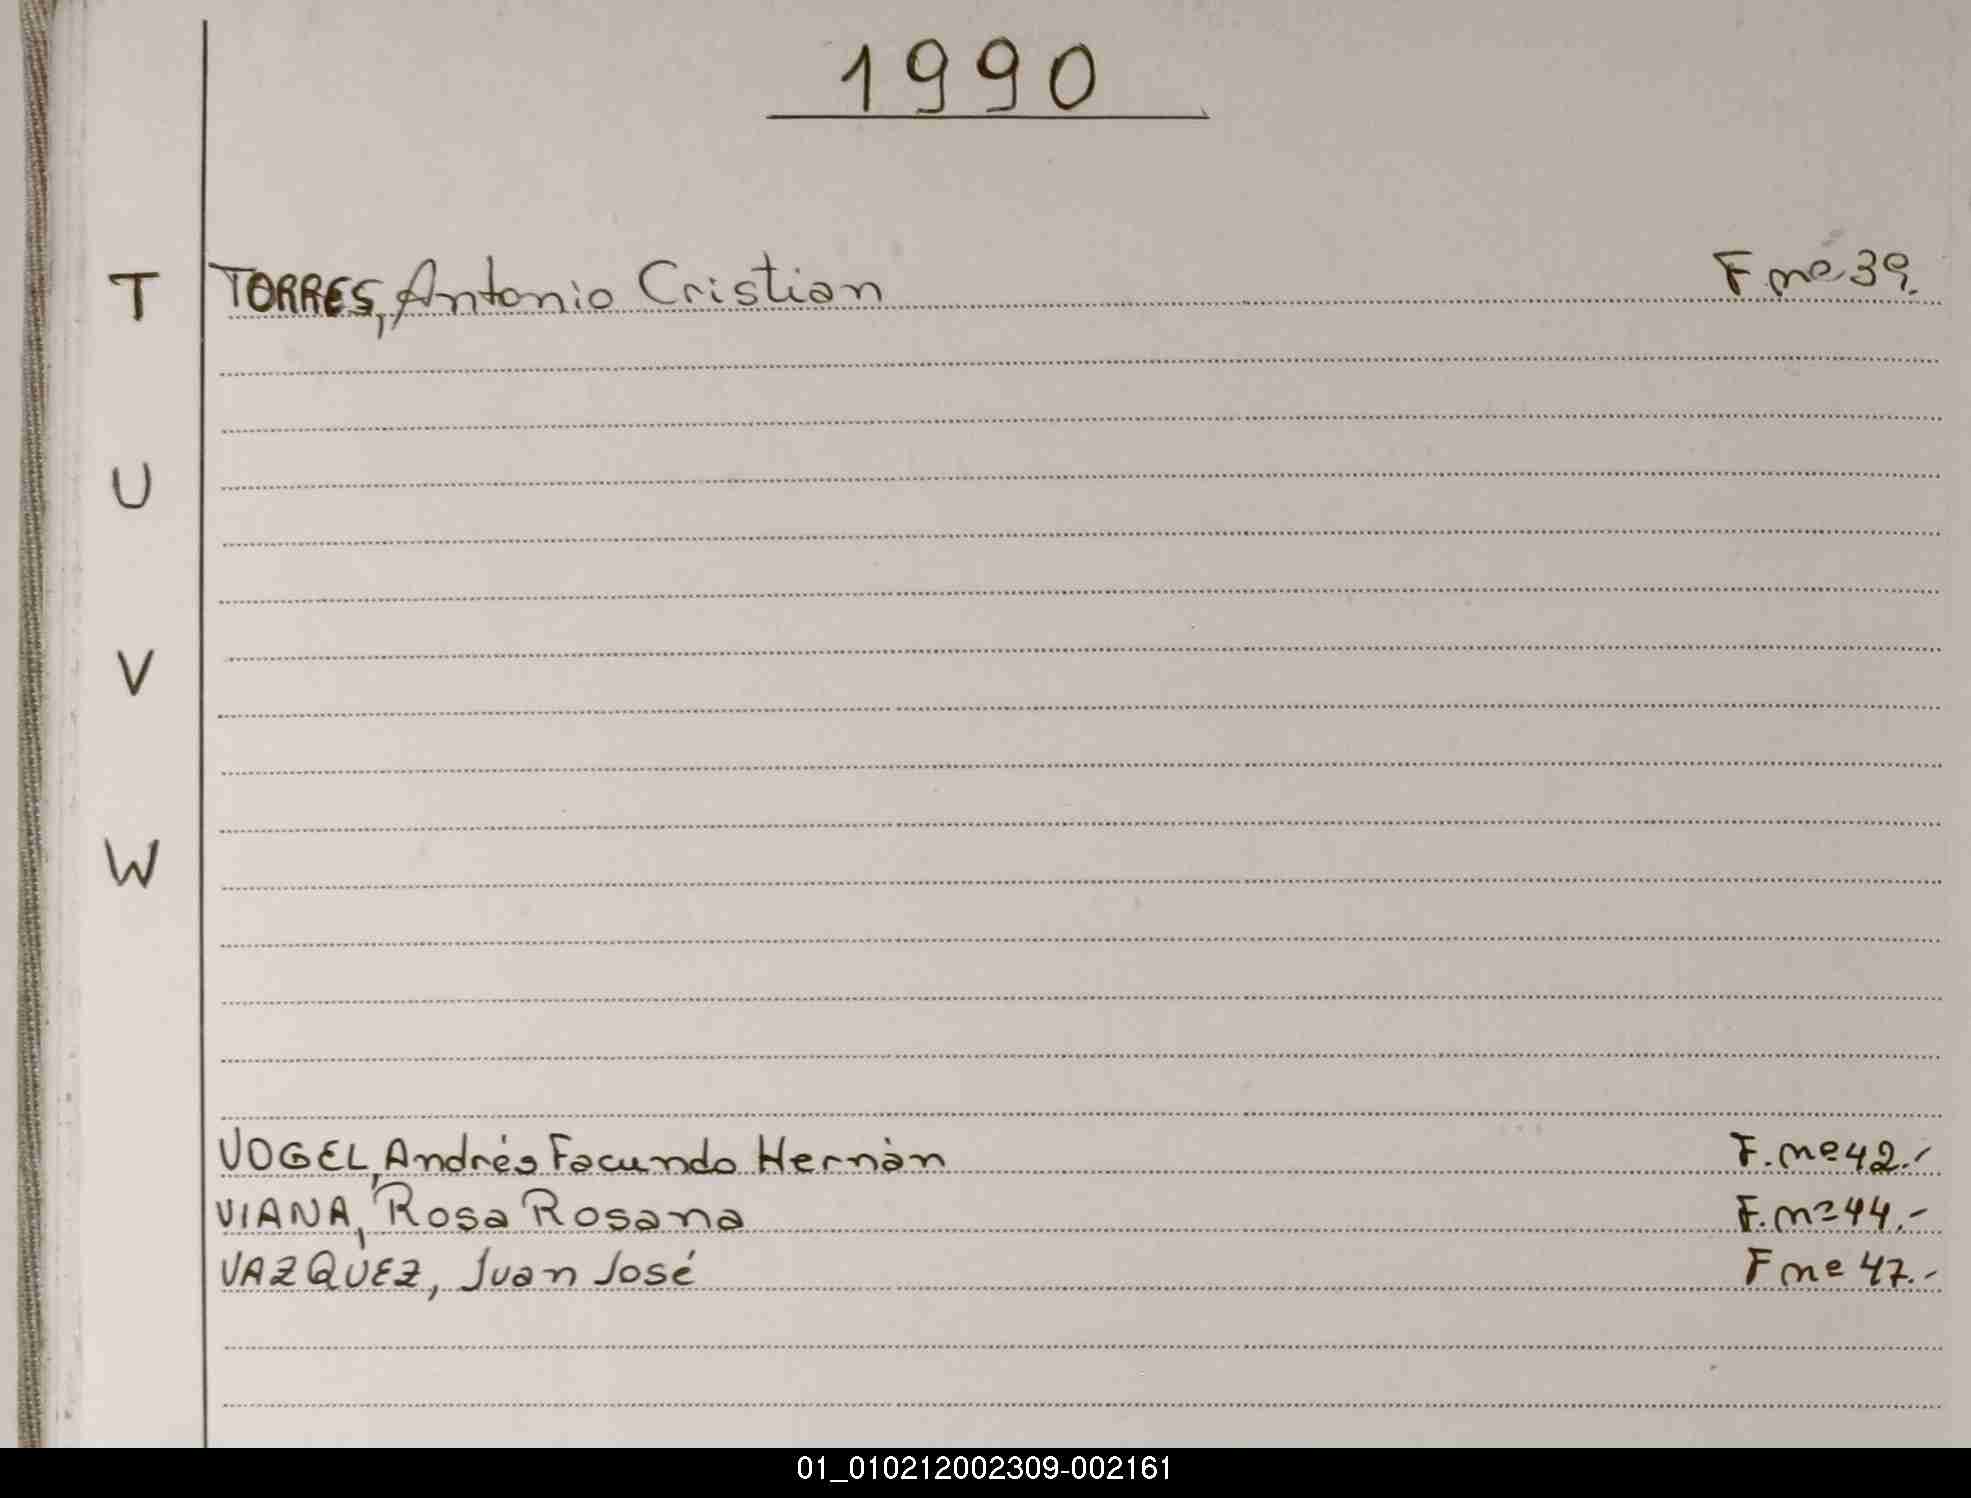 1990
T TORRES, Antonio Cristian F nº 39.
U
V
W
VOGEL, Andrés Facundo Hernàn F. nº 42.-
VIANA, Rosa Rosana F. nº 44.-
VAZQUEZ, Juan José F nº 47.-
01_010212002309-002161